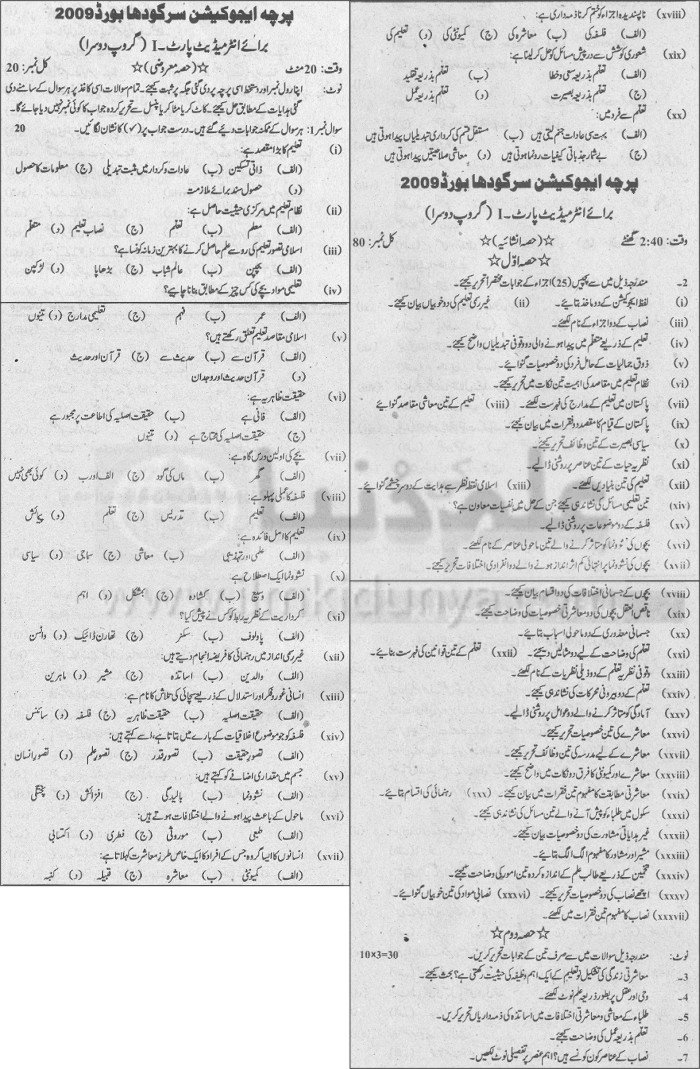 پرچہ ایجوکیشن سرگودھا بورڈ 2009
برائے انٹرمیڈیٹ پارٹ-I (گروپ دوسرا)
وقت: 20 منٹ ☆(حصہ معروضی)☆ کل نمبر: 20
نوٹ: اپنا رول نمبر اور دستخط اسی پرچہ پر دی گئی جگہ پر ثبت کیجئے۔ تمام سوالات اسی کاغذ پر ہر سوال کے سامنے دی
گئی ہدایات کے مطابق حل کیجئے۔ کاٹ کر یا مٹا کر یا پنسل سے تحریر کردہ جواب کا کوئی نمبر نہیں دیا جائے گا۔
سوال نمبر 1: ہر سوال کے ممکنہ جوابات دئیے گئے ہیں۔ درست جواب پر (✓) کا نشان لگائیں۔ 20
(i) تعلیم کا بڑا مقصد ہے:
(الف) ذاتی تسکین (ب) عادات و کردار میں مثبت تبدیلی (ج) معلومات کا حصول
(د) حصول سند برائے ملازمت
(ii) نظام تعلیم میں مرکزی حیثیت حاصل ہے:
(الف) معلم (ب) تعلم (ج) نصاب تعلیم (د) متعلم
(iii) اسلامی تصور تعلیم کی رو سے علم حاصل کرنے کا بہترین زمانہ کونسا ہے؟
(الف) بچپن (ب) عالم شباب (ج) بڑھاپا (د) لڑکپن
(iv) تعلیمی مواد بچے کی کس چیز کے مطابق بنانا چاہیے؟
(الف) عمر (ب) فہم (ج) تعلیمی مدارج (د) تینوں
(v) اسلامی مقاصد تعلیم تعلق رکھتے ہیں؟
(الف) قرآن سے (ب) حدیث سے (ج) قرآن اور حدیث
(د) قرآن حدیث اور وجدان
(vi) حقیقت ظاہریہ ہے:
(الف) فانی ہے (ب) حقیقت اصلیہ کی اطاعت پر مجبور ہے
(ج) حقیقت اصلیہ کی محتاج ہے (د) تینوں
(vii) بچے کی اولین درس گاہ ہے:
(الف) گھر (ب) ماں کی گود (ج) الف اور ب (د) کوئی بھی نہیں
(viii) فلسفہ کا عملی پہلو ہے:
(الف) تعلیم (ب) تدریس (ج) تعلم (د) پیمائش
(ix) تعلیم کا اصل فائدہ ہے:
(الف) علمی اور تہذیبی (ب) معاشی (ج) سماجی (د) سیاسی
(x) نشوونما ایک اصطلاح ہے
(الف) وسیع (ب) کشادہ (ج) مشکل (د) اہم
(xi) کرداریت کے نظریہ ربط کو کس نے پیش کیا؟
(الف) پاولوف (ب) سکنر (ج) تھارن ڈائیک (د) واٹسن
(xii) غیر رسمی انداز میں رہنمائی کا فریضہ انجام دیتے ہیں:
(الف) والدین (ب) اساتذہ (ج) مشیر (د) ماہرین
(xiii) انسانی غور و فکر اور استدلال کے ذریعے سچائی کی تلاش کا نام ہے:
(الف) حقیقت اصلیہ (ب) حقیقت ظاہریہ (ج) فلسفہ (د) سائنس
(xiv) فلسفہ کا جو موضوع اخلاقیات کے بارے میں بتاتا ہے، اسے کہتے ہیں:
(الف) تصور حقیقت (ب) تصور قدر (ج) تصور علم (د) تصور انسان
(xv) جسم میں مقداری اضافے کو کہتے ہیں:
(الف) نشوونما (ب) بالیدگی (ج) افزائش (د) پختگی
(xvi) ماحول کے باعث پیدا ہونے والے اختلافات ہوتے ہیں:
(الف) طبعی (ب) موروثی (ج) فطری (د) اکتسابی
(xvii) انسانوں کا ایسا گروہ جس کے افراد کا ایک خاص طرز معاشرت کہلاتا ہے:
(الف) کمیونٹی (ب) معاشرہ (ج) قبیلہ (د) کنبہ
(xviii) ناپسندیدہ اجزاء کو ختم کرنا ذمہ داری ہے:
(الف) فلسفہ کی (ب) معاشرہ کی (ج) کمیونٹی کی (د) تعلیم کی
(xix) شعوری کوشش سے درپیش مسائل کو حل کر لینا ہے:
(الف) تعلم بذریعہ سعی و خطا (ب) تعلم بذریعہ تقلید
(ج) تعلم بذریعہ بصیرت (د) تعلم بذریعہ عمل
(xx) تعلم سے فرد میں:
(الف) بہت سی عادات جنم لیتی ہیں (ب) مستقل قسم کی کرداری تبدیلیاں پیدا ہوتی ہیں
(ج) بے شمار جذباتی کیفیات رونما ہوتی ہیں (د) معاشی صلاحیتیں پیدا ہوتی ہیں
پرچہ ایجوکیشن سرگودھا بورڈ 2009
برائے انٹرمیڈیٹ پارٹ-I (گروپ دوسرا)
وقت: 2:40 گھنٹے ☆(حصہ انشائیہ)☆ کل نمبر: 80
☆حصہ اوّل☆
2- مندرجہ ذیل میں سے پچیس (25) اجزاء کے جوابات مختصراً تحریر کیجئے۔
(i) لفظ ایجوکیشن کے دو ماخذ بتائیے۔ (ii) غیر رسمی تعلیم کی دو خوبیاں بیان کیجئے۔
(iii) نصاب کے دو اجزاء کے نام لکھئے۔
(iv) تعلیم کے ذریعے متعلم میں پیدا ہونے والی دو وقوفی تبدیلیاں واضح کیجئے۔
(v) ذوق جمالیات کے حامل فرد کی دو خصوصیات گنوائیے۔
(vi) نظام تعلیم میں مقاصد کی اہمیت تین نکات میں تحریر کیجئے۔
(vii) پاکستان میں تعلیم کے مدارج کی فہرست لکھئے۔ (viii) تعلیم کے تین معاشی مقاصد گنوائیے
(ix) پاکستان کے قیام کا مقصد دو فقرات میں بیان کیجئے۔
(x) سیاسی بصیرت کے تین وظائف تحریر کیجئے۔
(xi) نظریہ حیات کے تین عناصر پر روشنی ڈالیے۔
(xii) تعلیم کی تین بنیادیں لکھئے۔ (xiii) اسلامی نقطہ نظر سے ہدایت کے دو سرچشمے گنوائیے۔
(xiv) تین تعلیمی مسائل کی نشاندہی کیجئے جن کے حل میں نفسیات معاون ہے؟
(xv) فلسفہ کے دو موضوعات پر روشنی ڈالیے۔
(xvi) بچوں کی نشوونما کو متاثر کرنے والے تین ماحولی عناصر کے نام لکھئے۔
(xvii) بچوں کی نشوونما پر انتہائی کم اثر انداز ہونے والے دو انفرادی اختلافات تحریر کیجئے۔
(xviii) بچوں کے جسمانی اختلافات کی دو اقسام بیان کیجئے۔
(xix) ناقص العقل بچوں کی دو معاشرتی خصوصیات کی وضاحت کیجئے۔
(xx) جسمانی معذوری کے دو ماحولی اسباب بتائیے۔
(xxi) تعلم کی وضاحت کے لیے دو مثالیں دیجئے۔ (xxii) تعلم کے تین قوانین کی فہرست بنائیے۔
(xxiii) وقوفی نظریہ تعلم کے دو ذیلی نظریات کے نام لکھئے۔
(xxiv) تعلم کے دو بیرونی محرکات کی نشاندہی کیجئے۔
(xxv) آمادگی کو متاثر کرنے والے دو عوامل پر روشنی ڈالیے۔
(xxvi) معاشرے کی تین خصوصیات تحریر کیجئے۔
(xxvii) معاشرے کے لیے مدرسہ کے تین وظائف تحریر کیجئے۔
(xxviii) معاشرے اور کمیونٹی کا فرق دو نکات میں واضح کیجئے۔
(xxix) معاشرتی مطابقت کا مفہوم تین فقرات میں بیان کیجئے۔ (xxx) رہنمائی کی اقسام بتائیے۔
(xxxi) سکول میں طلباء کو پیش آنے والے تین مسائل کی نشاندہی کیجئے۔
(xxxii) غیر ہدایاتی مشاورت کی دو خصوصیات بیان کیجئے۔
(xxxiii) مشیر اور مشاور کا مفہوم الگ الگ بتائیے۔
(xxxiv) تخمین کے ذریعے طالب علم کے اندازہ کردہ تین امور کی وضاحت کیجئے۔
(xxxv) اچھے نصاب کی دو خصوصیات تحریر کیجئے۔ (xxxvi) نصابی مواد کی تین خوبیاں گنوائیے۔
(xxxvii) نصاب کا مفہوم تین فقرات میں لکھئے۔
☆حصہ دوم☆
نوٹ: مندرجہ ذیل سوالات میں سے صرف تین کے جوابات تحریر کریں۔ 10×3=30
3- معاشرتی زندگی کی تشکیل نو تعلیم کے ایک اہم وظیفہ کی حیثیت رکھتی ہے؟ بحث کیجئے۔
4- وحی اور عقل پر بطور ذریعہ علم نوٹ لکھئے۔
5- طلباء کے معاشی و معاشرتی اختلافات میں اساتذہ کی ذمہ داریاں تحریر کریں۔
6- تعلم بذریعہ عمل کی وضاحت کیجئے۔
7- نصاب کے عناصر کون کونسے ہیں؟ اہم عنصر پر تفصیلی نوٹ لکھیں۔